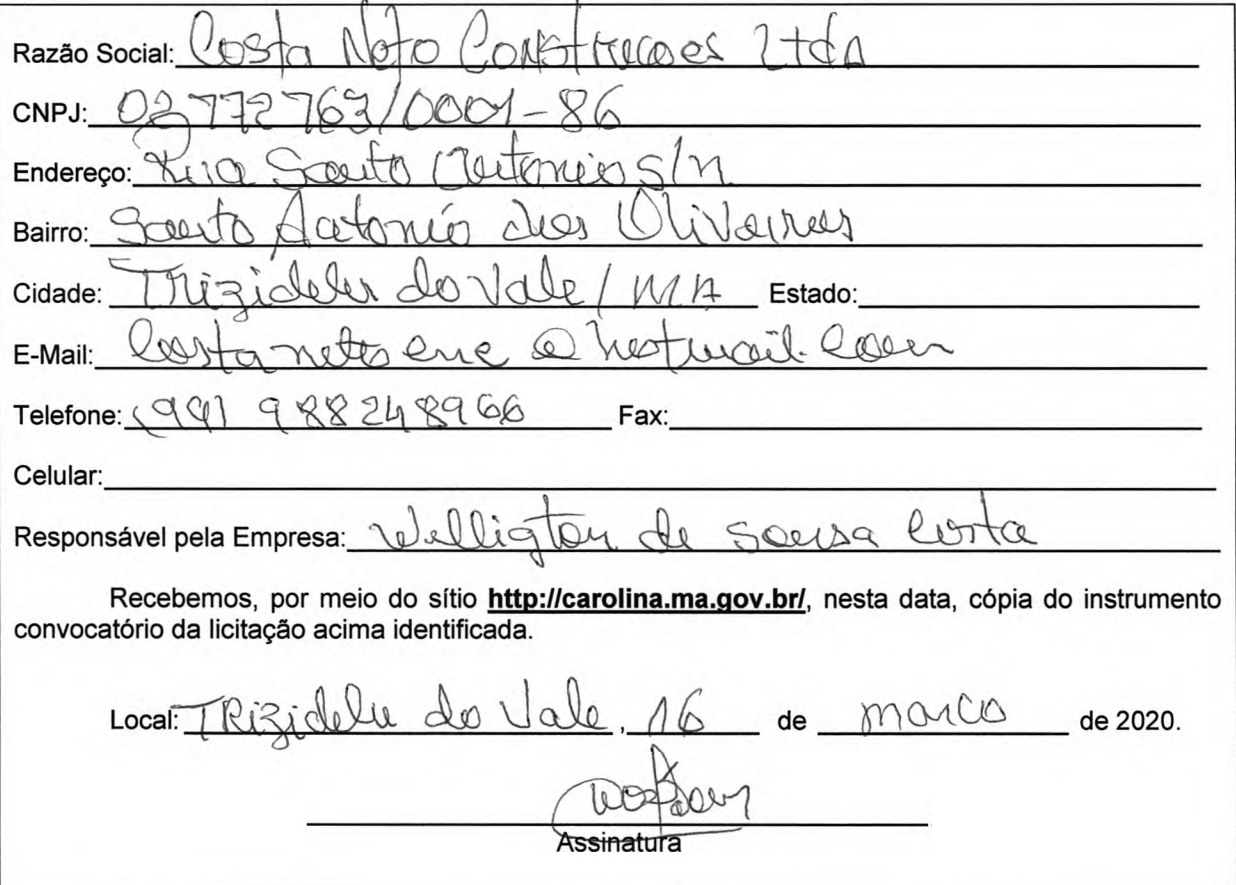 Razão Social: Costa Neto Construcoes Ltda
CNPJ: 02772763/0001-86
Endereço: Rua Santo Antonio s/n
Bairro: Santo Antonio dos Oliveiras
Cidade: Trizidela do Vale / MA Estado:
E-Mail: Costanetoenc@hotmail.com
Telefone: (99) 988248966 Fax:
Celular:
Responsável pela Empresa: Welligton de Sousa Costa
Recebemos, por meio do sítio http://carolina.ma.gov.br/, nesta data, cópia do instrumento
convocatório da licitação acima identificada.
Local: Trizidela do Vale, 16 de marco de 2020.
Assinatura